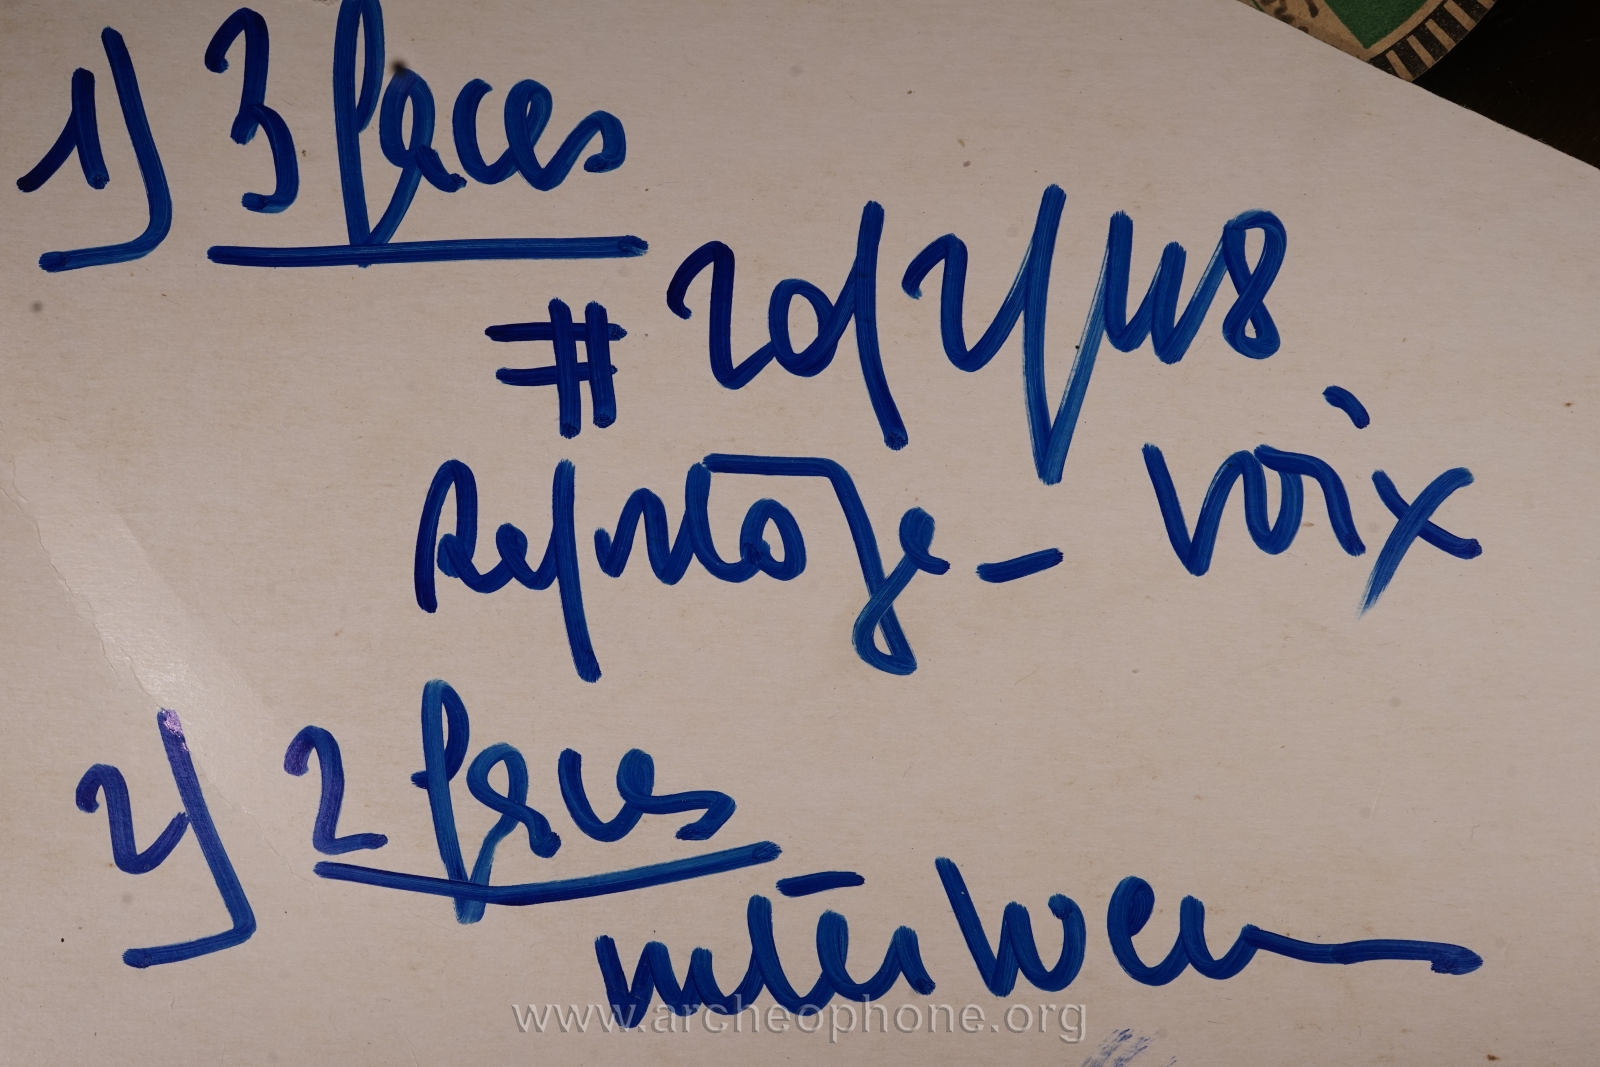 1) 3 faces
# 20/2/48
Reportage - voix
2) 2 faces
interwew
www.archeophone.org